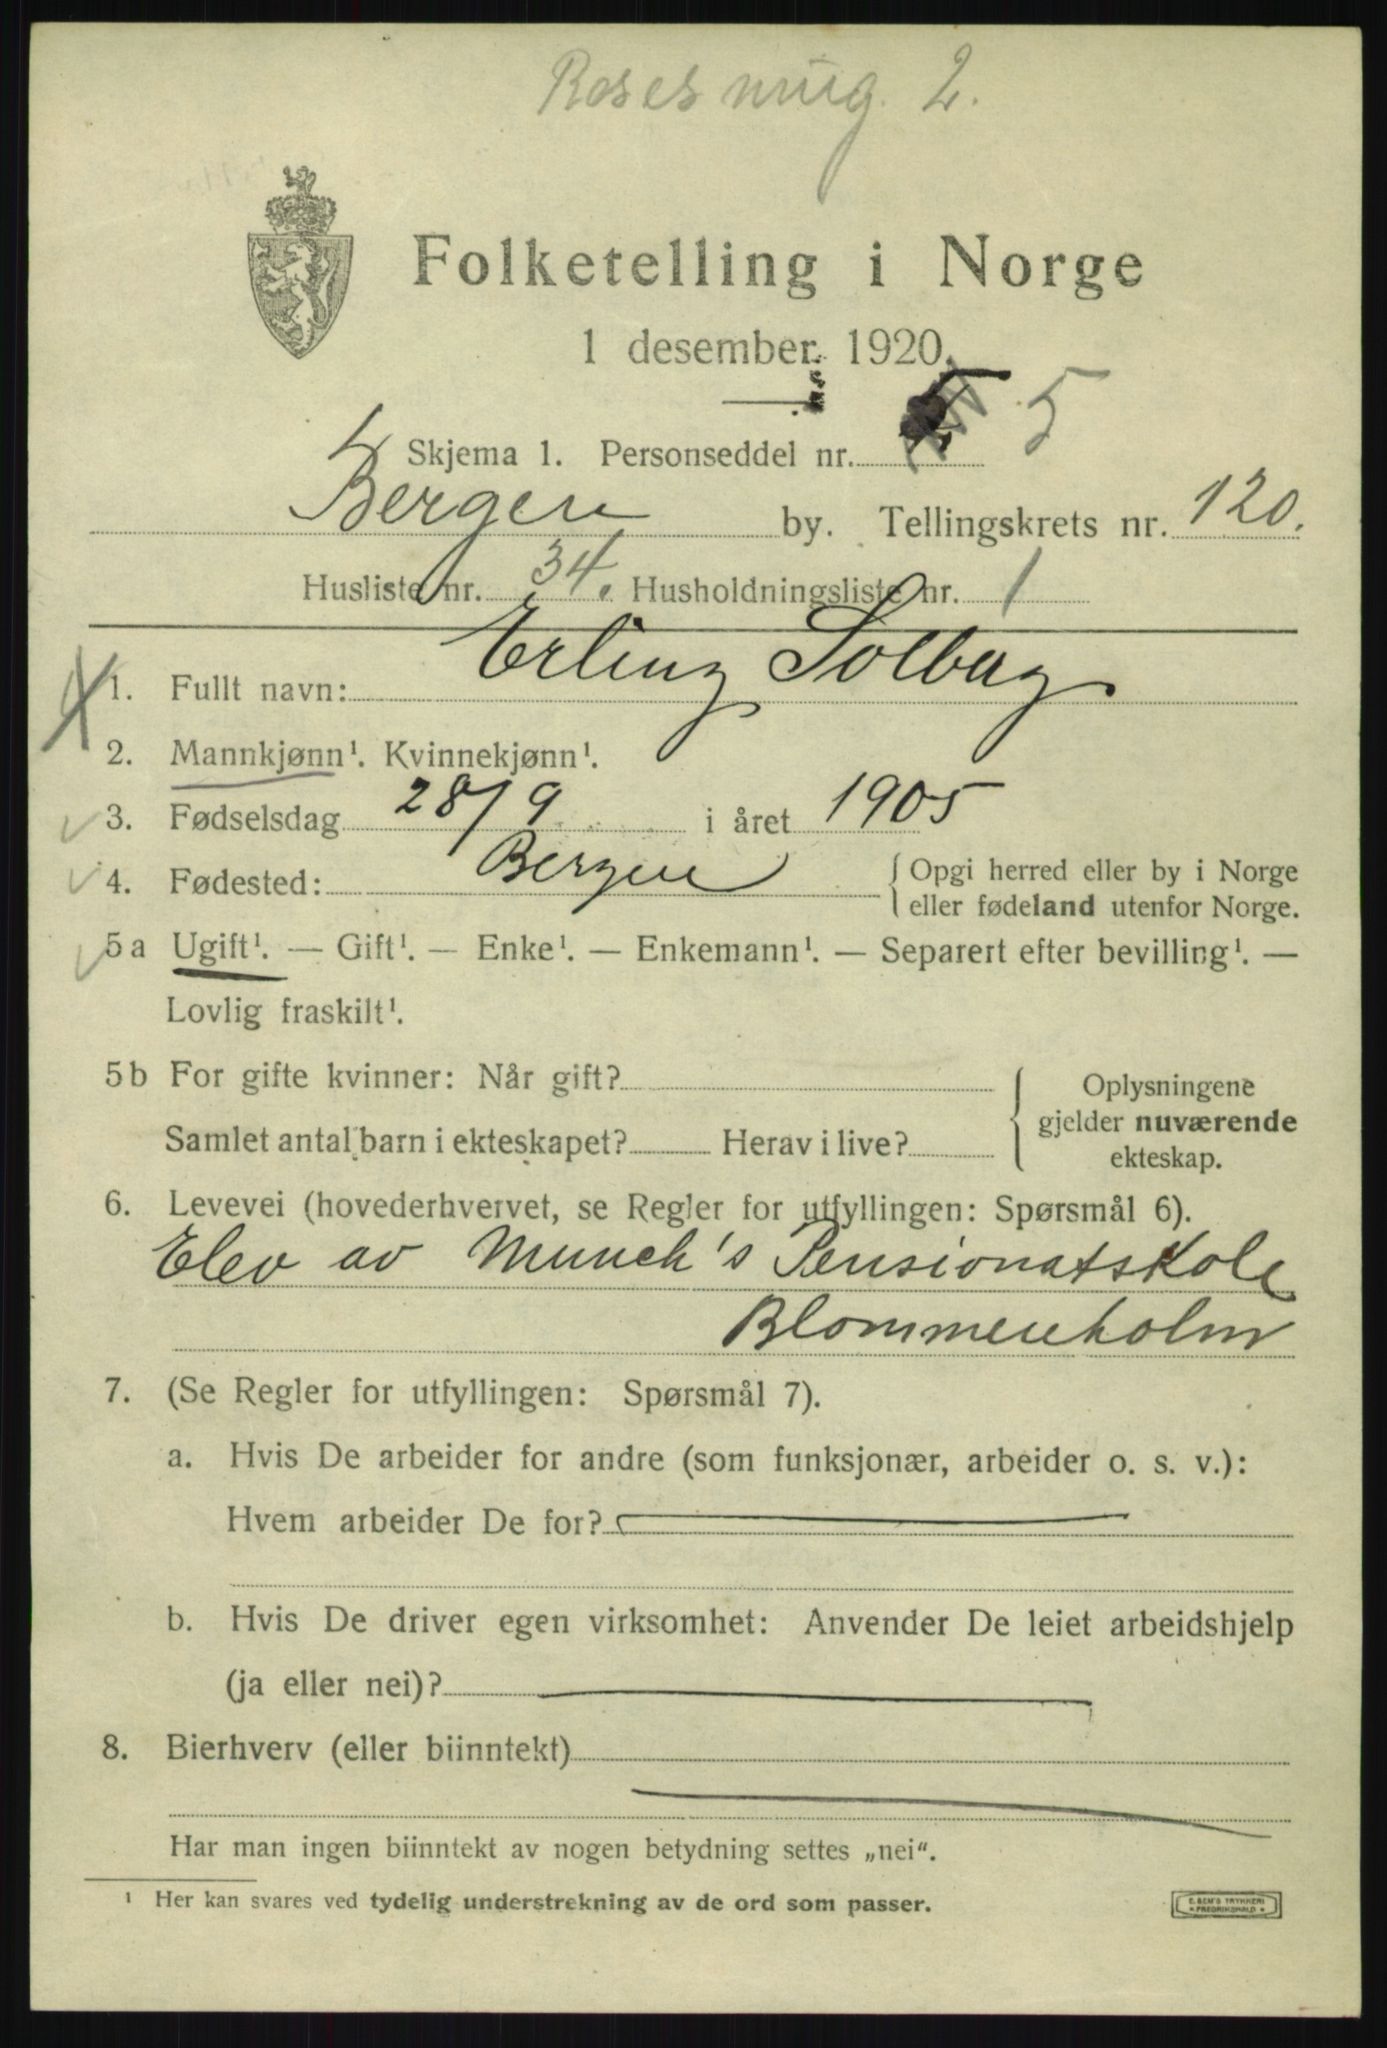 Rosesmug. 2.
Folketelling i Norge
1 desember 1920.
Skjema 1. Personseddel nr. 5
Bergen by. Tellingskrets nr. 120.
Husliste nr. 34. Husholdningsliste nr. 1
1. Fullt navn: Erling Solberg
2. Mannkjønn¹. Kvinnekjønn¹.
3. Fødselsdag 28/9 i året 1905
4. Fødested: Bergen { Opgi herred eller by i Norge
eller fødeland utenfor Norge.
5 a Ugift¹. — Gift¹. — Enke¹. — Enkemann¹. — Separert efter bevilling¹. —
Lovlig fraskilt¹.
5 b For gifte kvinner: Når gift?
Samlet antal barn i ekteskapet? Herav i live?
Oplysningene
gjelder nuværende
ekteskap.
6. Levevei (hovederhvervet, se Regler for utfyllingen: Spørsmål 6).
Elev av Munch's Pensionatskole
Blommenholm
7. (Se Regler for utfyllingen: Spørsmål 7).
a. Hvis De arbeider for andre (som funksjonær, arbeider o. s. v.):
Hvem arbeider De for?
b. Hvis De driver egen virksomhet: Anvender De leiet arbeidshjelp
(ja eller nei)?
8. Bierhverv (eller biinntekt)
Har man ingen biinntekt av nogen betydning settes „nei“.
¹ Her kan svares ved tydelig understrekning av de ord som passer.
E. SEM'S TRYKKERI
• FREDRIKSHALD •